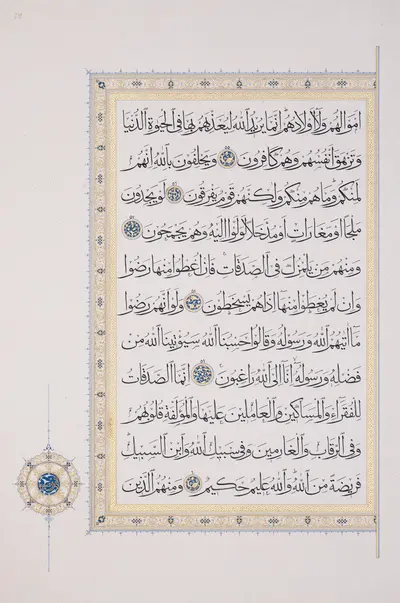 أَمْوَالُهُمْ وَلَا أَوْلَادُهُمْ إِنَّمَا يُرِيدُ اللّٰهُ لِيُعَذِّبَهُمْ بِهَا فِي الْحَيٰوةِ الدُّنْيَا
وَتَزْهَقَ أَنْفُسُهُمْ وَهُمْ كَافِرُونَ وَيَحْلِفُونَ بِاللّٰهِ إِنَّهُمْ
لَمِنْكُمْ وَمَا هُمْ مِنْكُمْ وَلٰكِنَّهُمْ قَوْمٌ يَفْرَقُونَ لَوْ يَجِدُونَ
مَلْجَأً أَوْ مَغَارَاتٍ أَوْ مُدَّخَلًا لَوَلَّوْا إِلَيْهِ وَهُمْ يَجْمَحُونَ
وَمِنْهُمْ مَنْ يَلْمِزُكَ فِي الصَّدَقَاتِ فَإِنْ أُعْطُوا مِنْهَا رَضُوا
وَإِنْ لَمْ يُعْطَوْا مِنْهَا إِذَا هُمْ يَسْخَطُونَ وَلَوْ أَنَّهُمْ رَضُوا
مَا اٰتٰيهُمُ اللّٰهُ وَرَسُولُهُ وَقَالُوا حَسْبُنَا اللّٰهُ سَيُؤْتِينَا اللّٰهُ مِنْ
فَضْلِهِ وَرَسُولُهُ إِنَّا إِلَى اللّٰهِ رَاغِبُونَ إِنَّمَا الصَّدَقَاتُ
لِلْفُقَرَاءِ وَالْمَسَاكِينِ وَالْعَامِلِينَ عَلَيْهَا وَالْمُؤَلَّفَةِ قُلُوبُهُمْ
وَفِي الرِّقَابِ وَالْغَارِمِينَ وَفِي سَبِيلِ اللّٰهِ وَابْنِ السَّبِيلِ
فَرِيضَةً مِنَ اللّٰهِ وَاللّٰهُ عَلِيمٌ حَكِيمٌ وَمِنْهُمُ الَّذِينَ